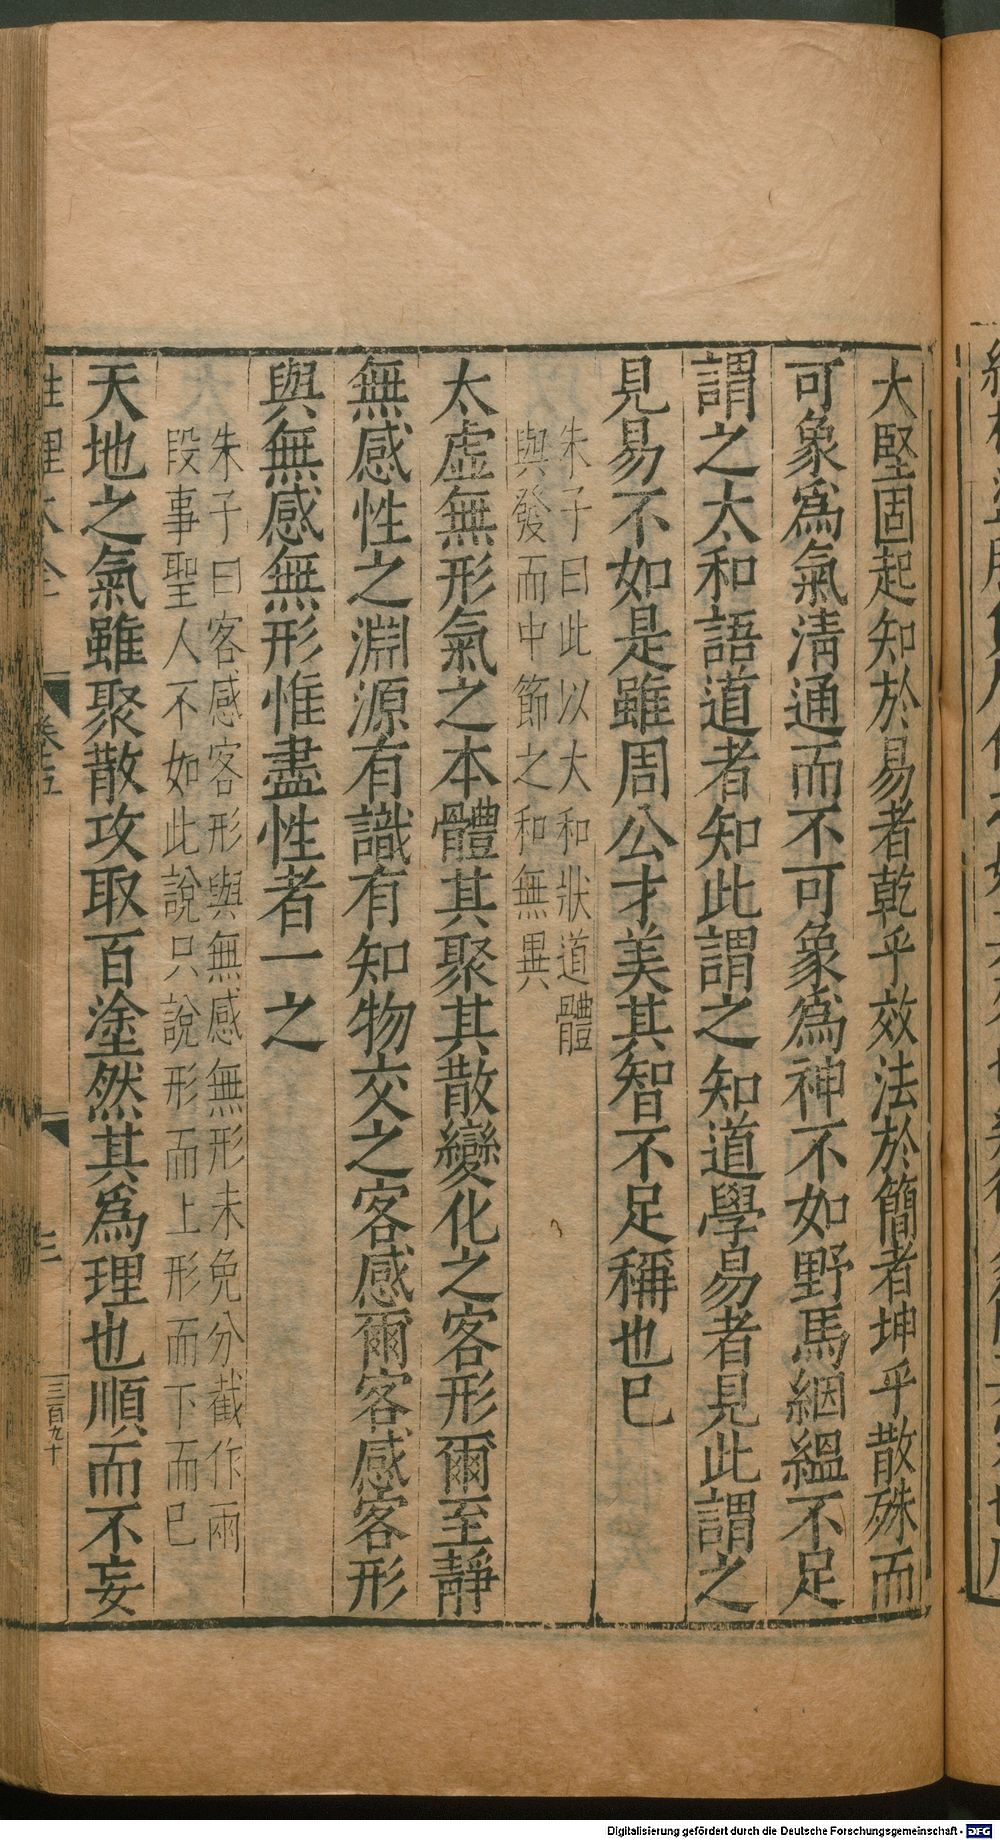 大堅固起知於易者乾乎效法於簡者坤乎散殊而
可象爲氣清通而不可象爲神不如野馬絪縕不足
謂之太和語道者知此謂之知道學易者見此謂之
見易不如是雖周公才美其智不足稱也已
朱子曰此以大和狀道體
與發而中節之和無異
太虛無形氣之本體其聚其散變化之客形爾至靜
無感性之淵源有識有知物交之客感爾客感客形
與無感無形惟盡性者一之
朱子曰客感客形與無感無形未免分截作兩
段事聖人不如此說只說形而上形而下而已
天地之氣雖聚散攻取百塗然其爲理也順而不妄
性理大全
卷五
三
三百九十
Digitalisierung gefördert durch die Deutsche Forschungsgemeinschaft - DFG